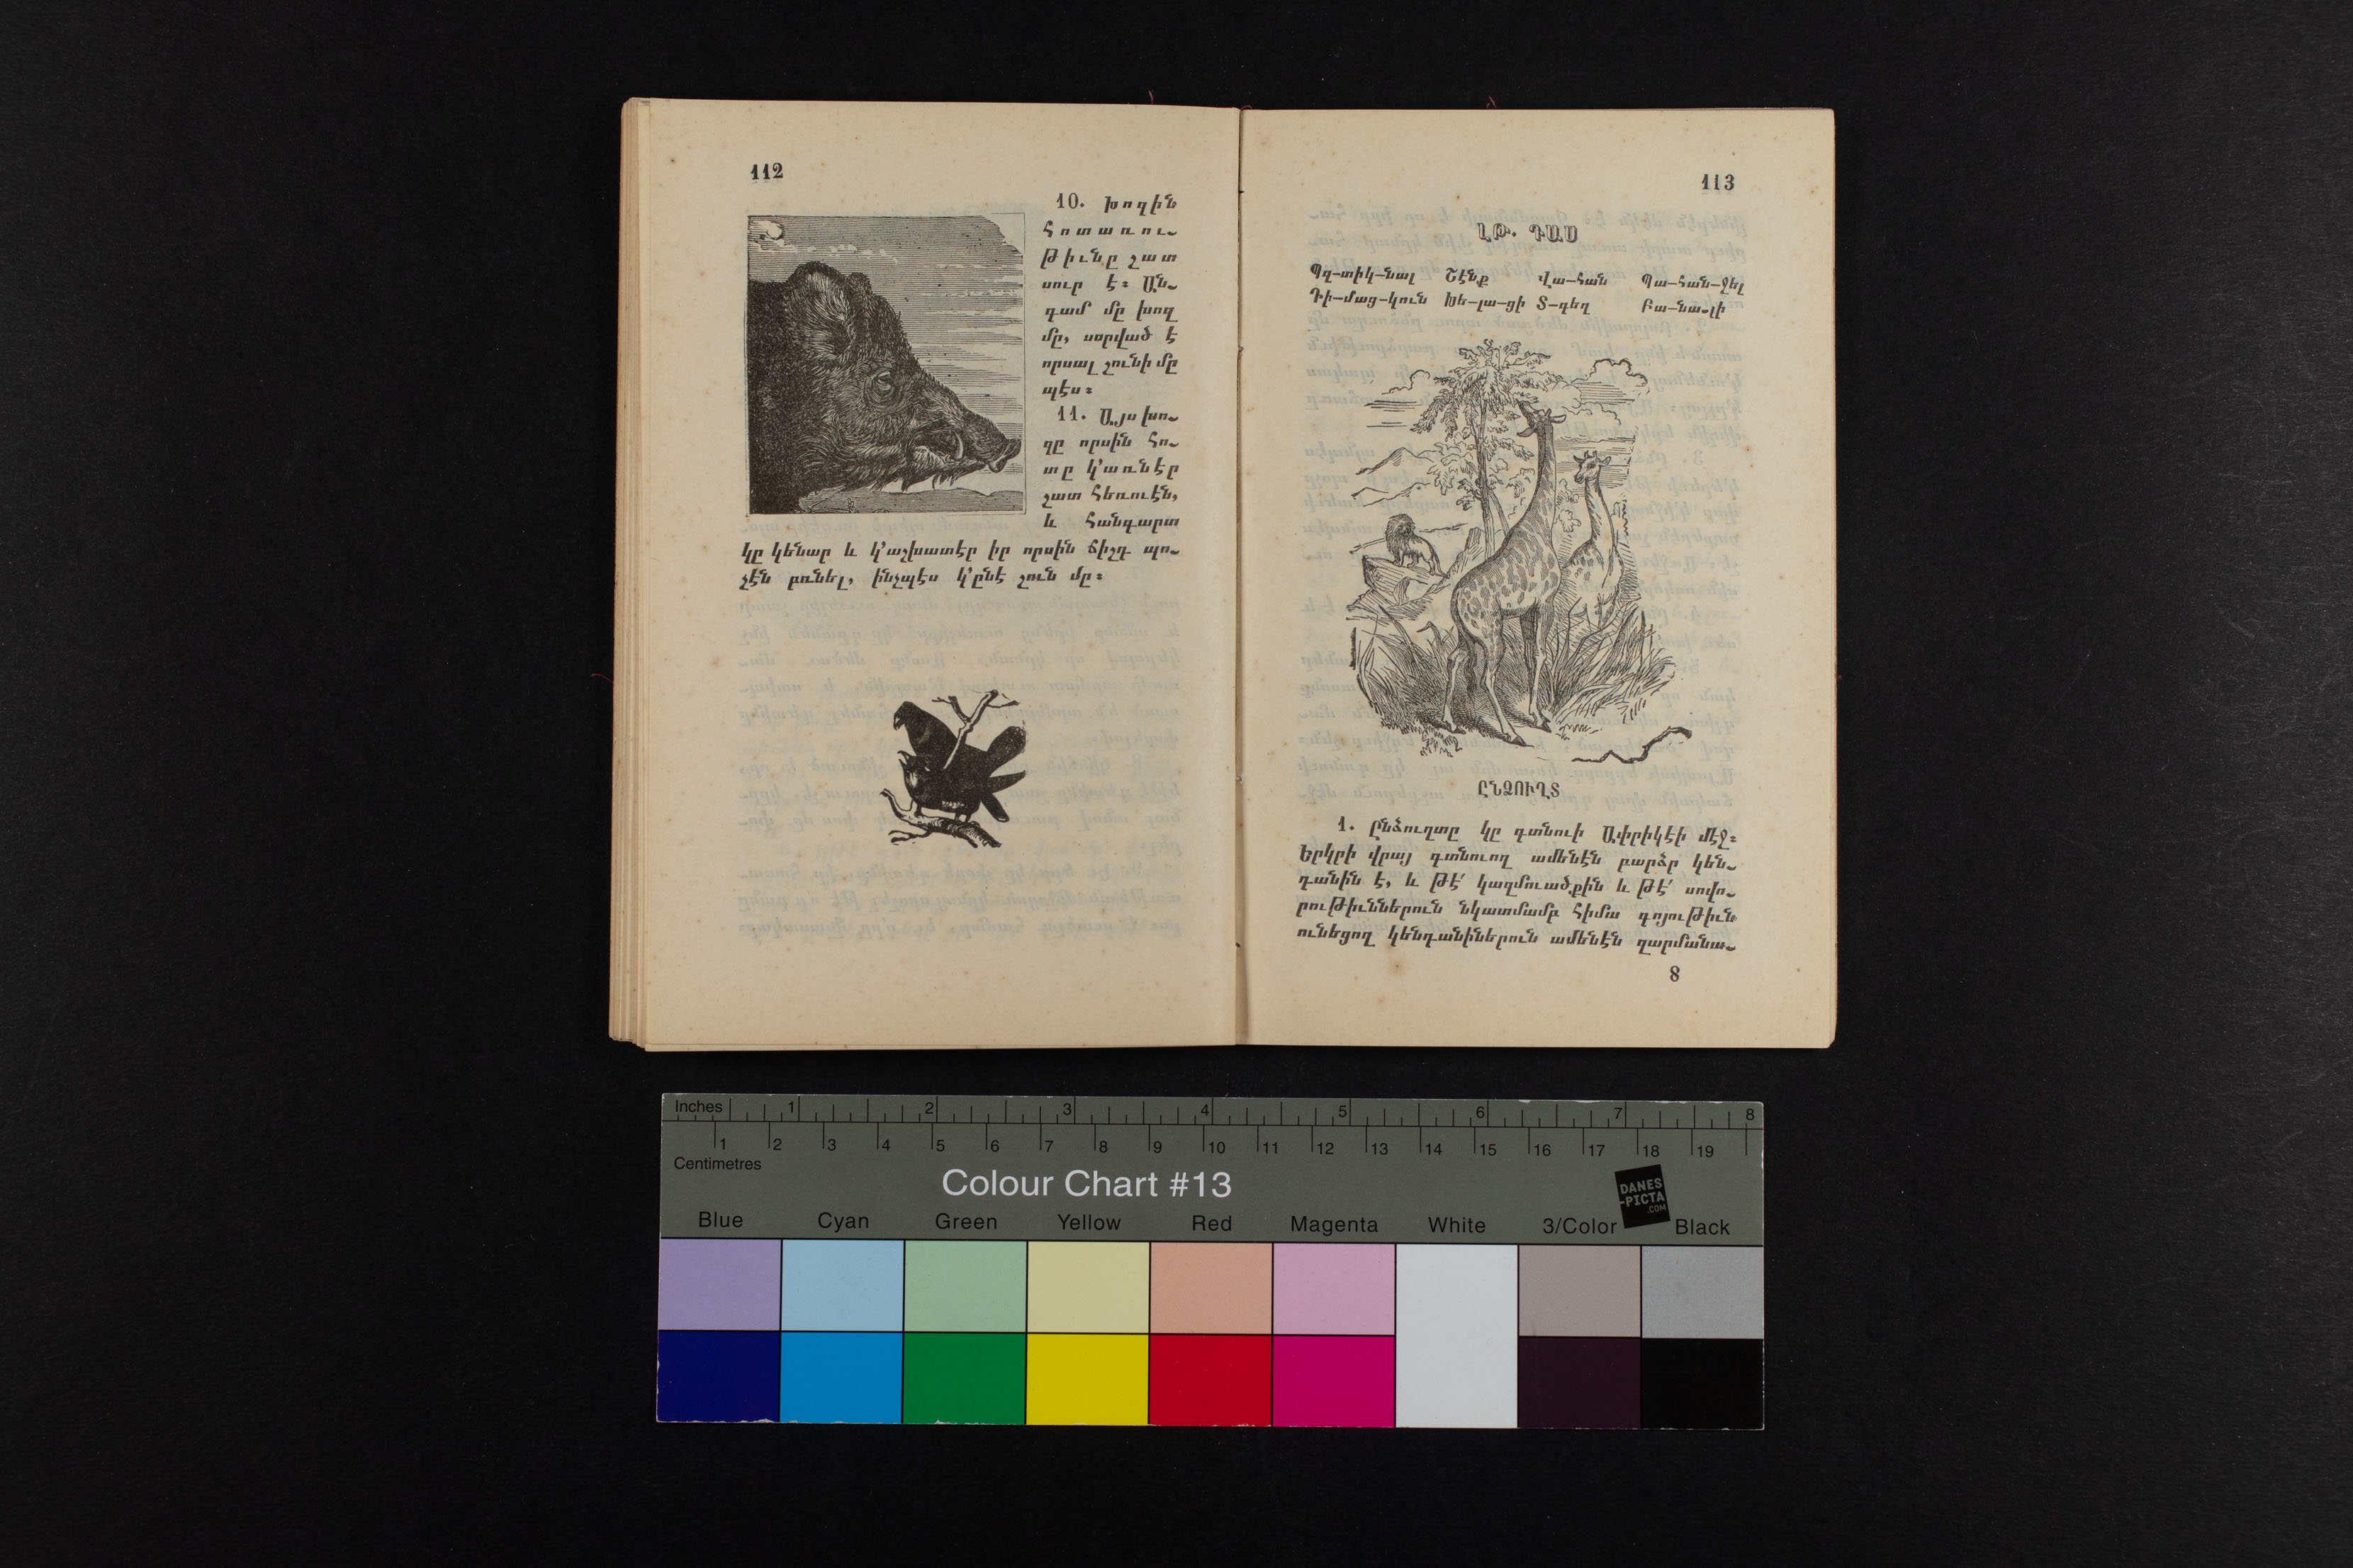 112
10. Խոզին
հոտառու֊
թիւնը չատ
սուր է։ Ան֊
գամ մը խոզ
մը, սօրված է
որսալ չունի մը
պէս։
11. Այս խո֊
զը որսին հո֊
տը կ՚առնէր
չատ հեռուէն,
և հանդարտ
կը կենար և կ՚աշխատէր իր որսին ճիշդ պո֊
չէն բռնել, ինչպէս կ՚ընէ շուն մը։
113
ԼԹ. ԴԱՍ
Պզ-տիկ-նալ Շէնք Վա-հան Պա-հան-ջել
Դի-մաց-կուն Խե-լա-ցի Տ-գեղ Բա-նա-լի
ԸՆՁՈՒՂՏ
1. Ընձուղտը կը գտնուի Ափրիկէի մէջ։
Երկրի վրայ գտնուող ամենէն բարձր կեն֊
դանին է, և թէ՛ կազմուածքին և թէ՛ սովո֊
րութիւններուն նկատմամբ հիմա գոյութիւն
ունեցող կենդանիներուն ամենէն զարմանա֊
8
Inches 1 2 3 4 5 6 7 8
1 2 3 4 5 6 7 8 9 10 11 12 13 14 15 16 17 18 19
Centimetres
Colour Chart #13
DANES
-PICTA
.COM
Blue Cyan Green Yellow Red Magenta White 3/Color Black